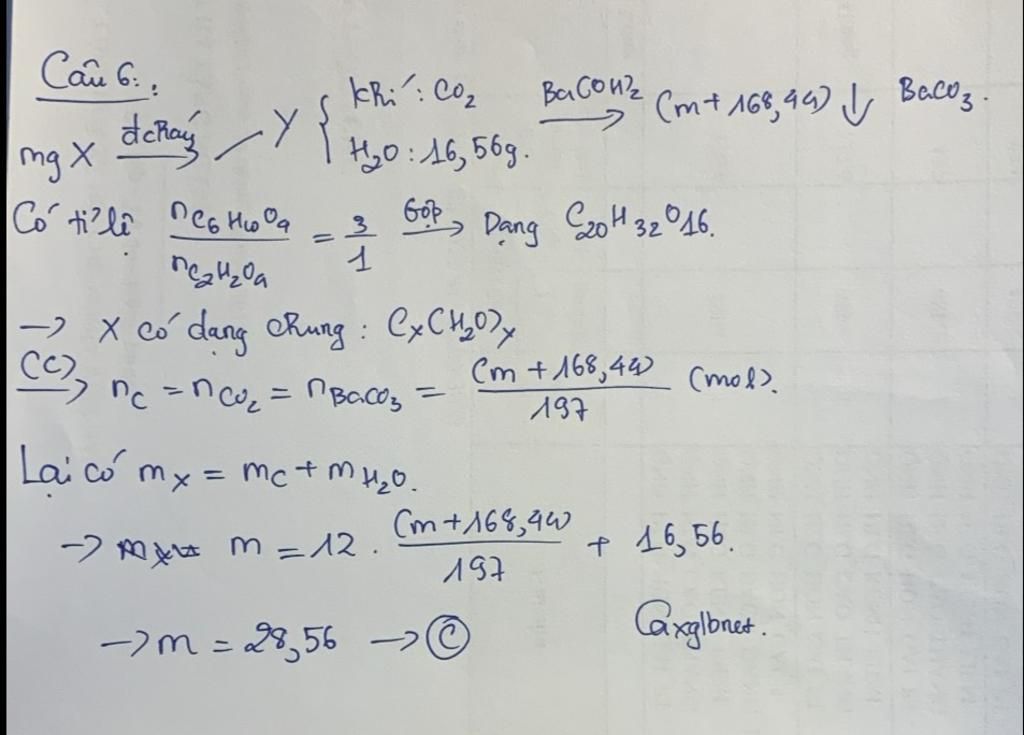 Câu 6:.
mg X đcháy → Y { khí: CO2 Ba(OH)2 → (m + 168,44) ↓ BaCO3.
H2O: 16,56g.
Có tỉ lệ nC6H10O4 / nC2H2O4 = 3/1 Gộp → Dạng C20H32O16.
→ X có dạng chung: Cx(H2O)x
(C) → nC = nCO2 = nBaCO3 = (m + 168,44) / 197 (mol).
Lại có mX = mC + mH2O.
→ m = 12 . (m + 168,44) / 197 + 16,56.
→ m = 28,56 → Ⓒ